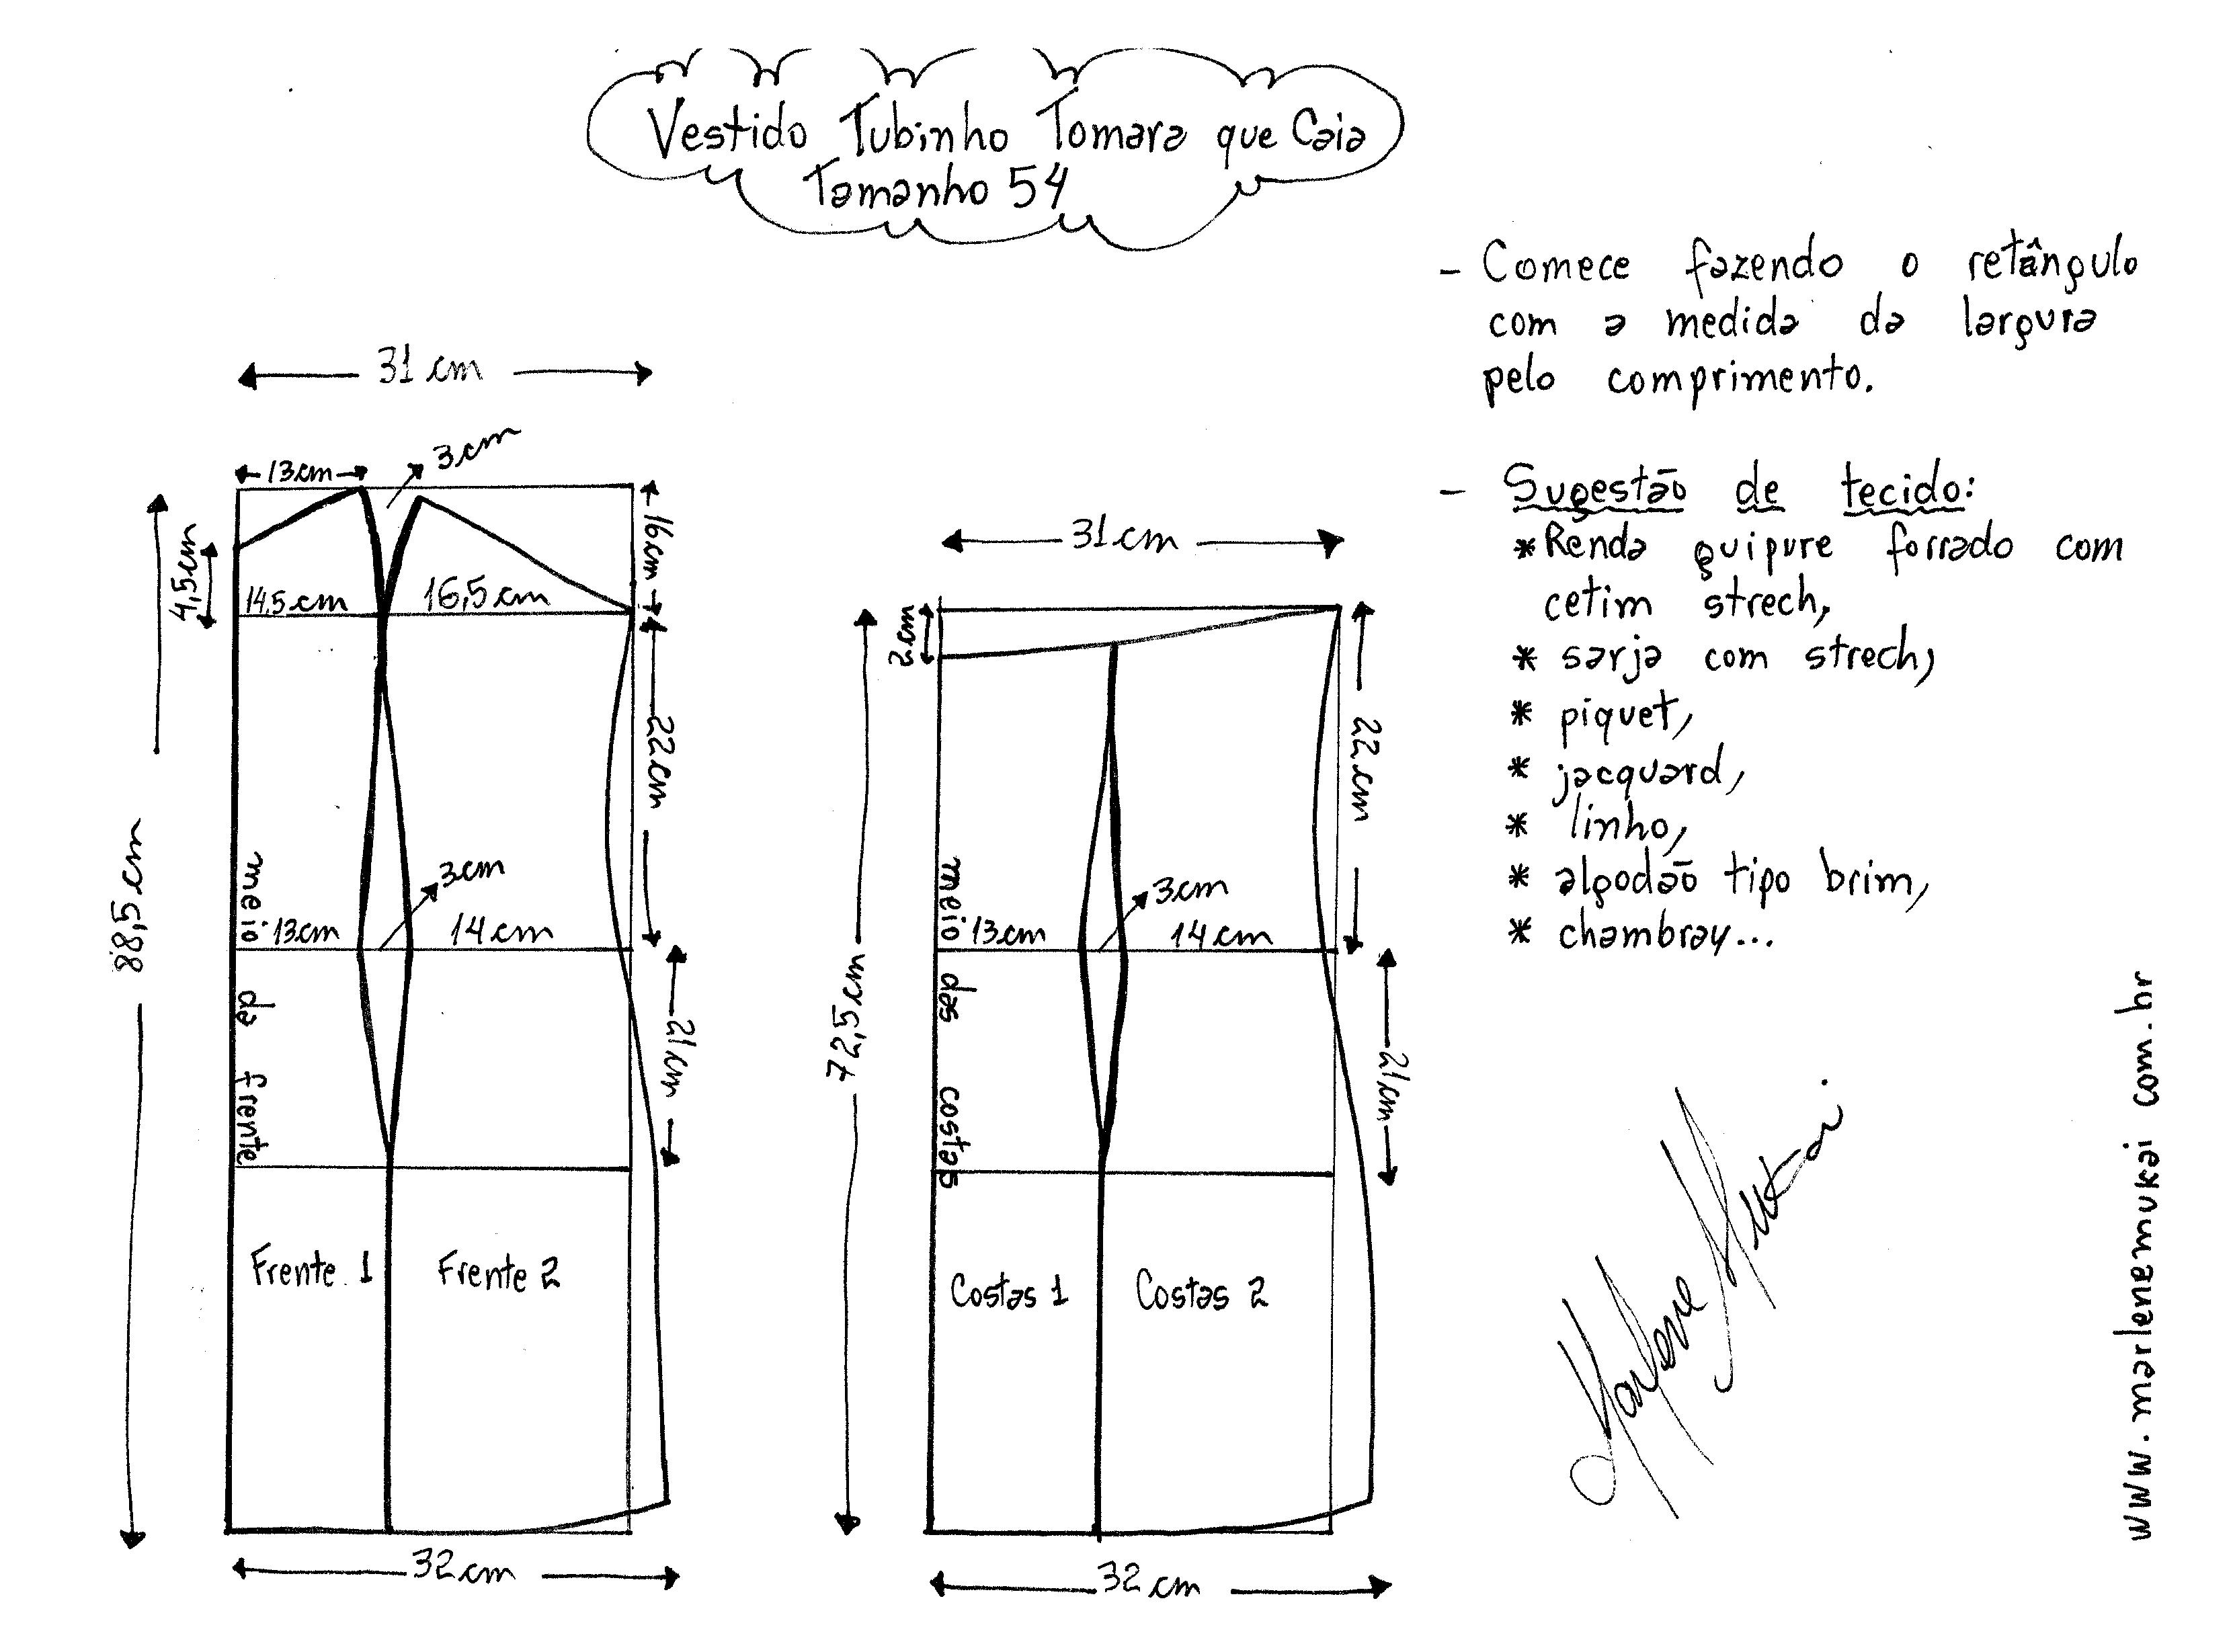 Vestido Tubinho Tomara que Caia
Tamanho 54
- Comece fazendo o retângulo
com a medida da largura
pelo comprimento.
- Sugestão de tecido:
* Renda guipure forrado com
cetim strech,
* sarja com strech,
* piquet,
* jacquard,
* linho,
* algodão tipo brim,
* chambray...
31 cm
13 cm
3 cm
16 cm
4,5 cm
14,5 cm
16,5 cm
22 cm
88,5 cm
meio da frente
13 cm
3 cm
14 cm
21 cm
Frente 1
Frente 2
32 cm
31 cm
2 cm
22 cm
72,5 cm
meio das costas
13 cm
3 cm
14 cm
21 cm
Costas 1
Costas 2
32 cm
Marlene Mukai
www.marlenemukai com.br